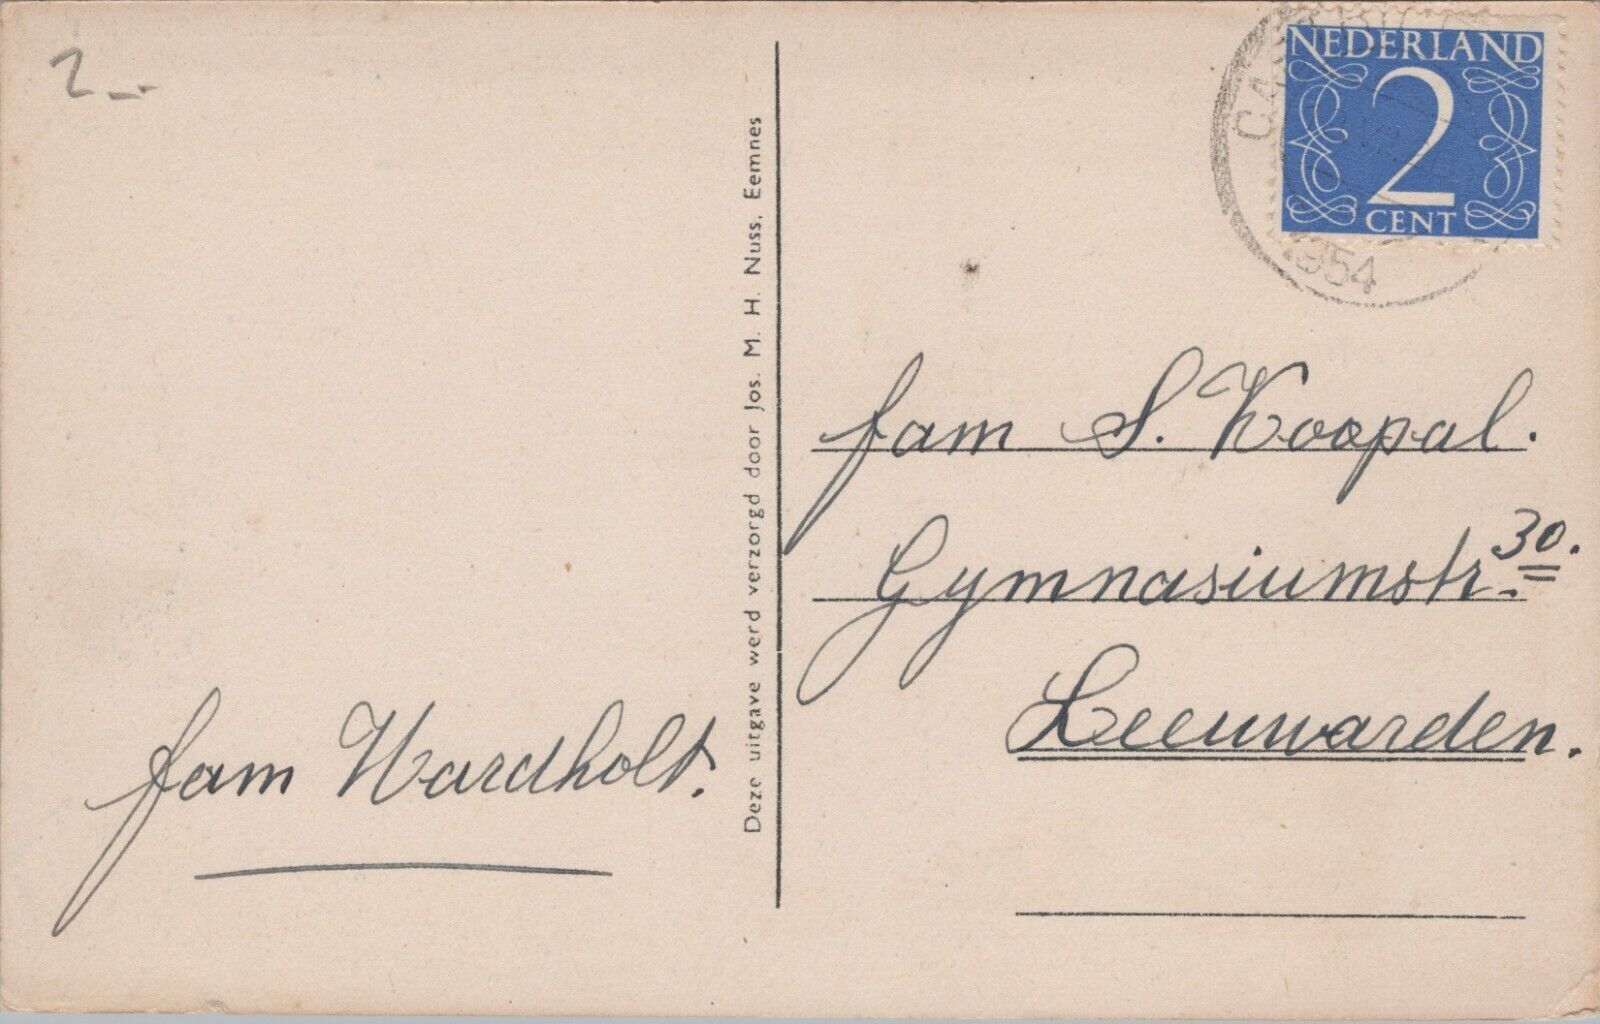 2_.
NEDERLAND
2
CENT
1954
Deze uitgave werd verzorgd door Jos. M. H. Nuss, Eemnes
fam S. Koopal.
Gymnasiumstr. 30.
Leeuwarden.
fam Wardholt.